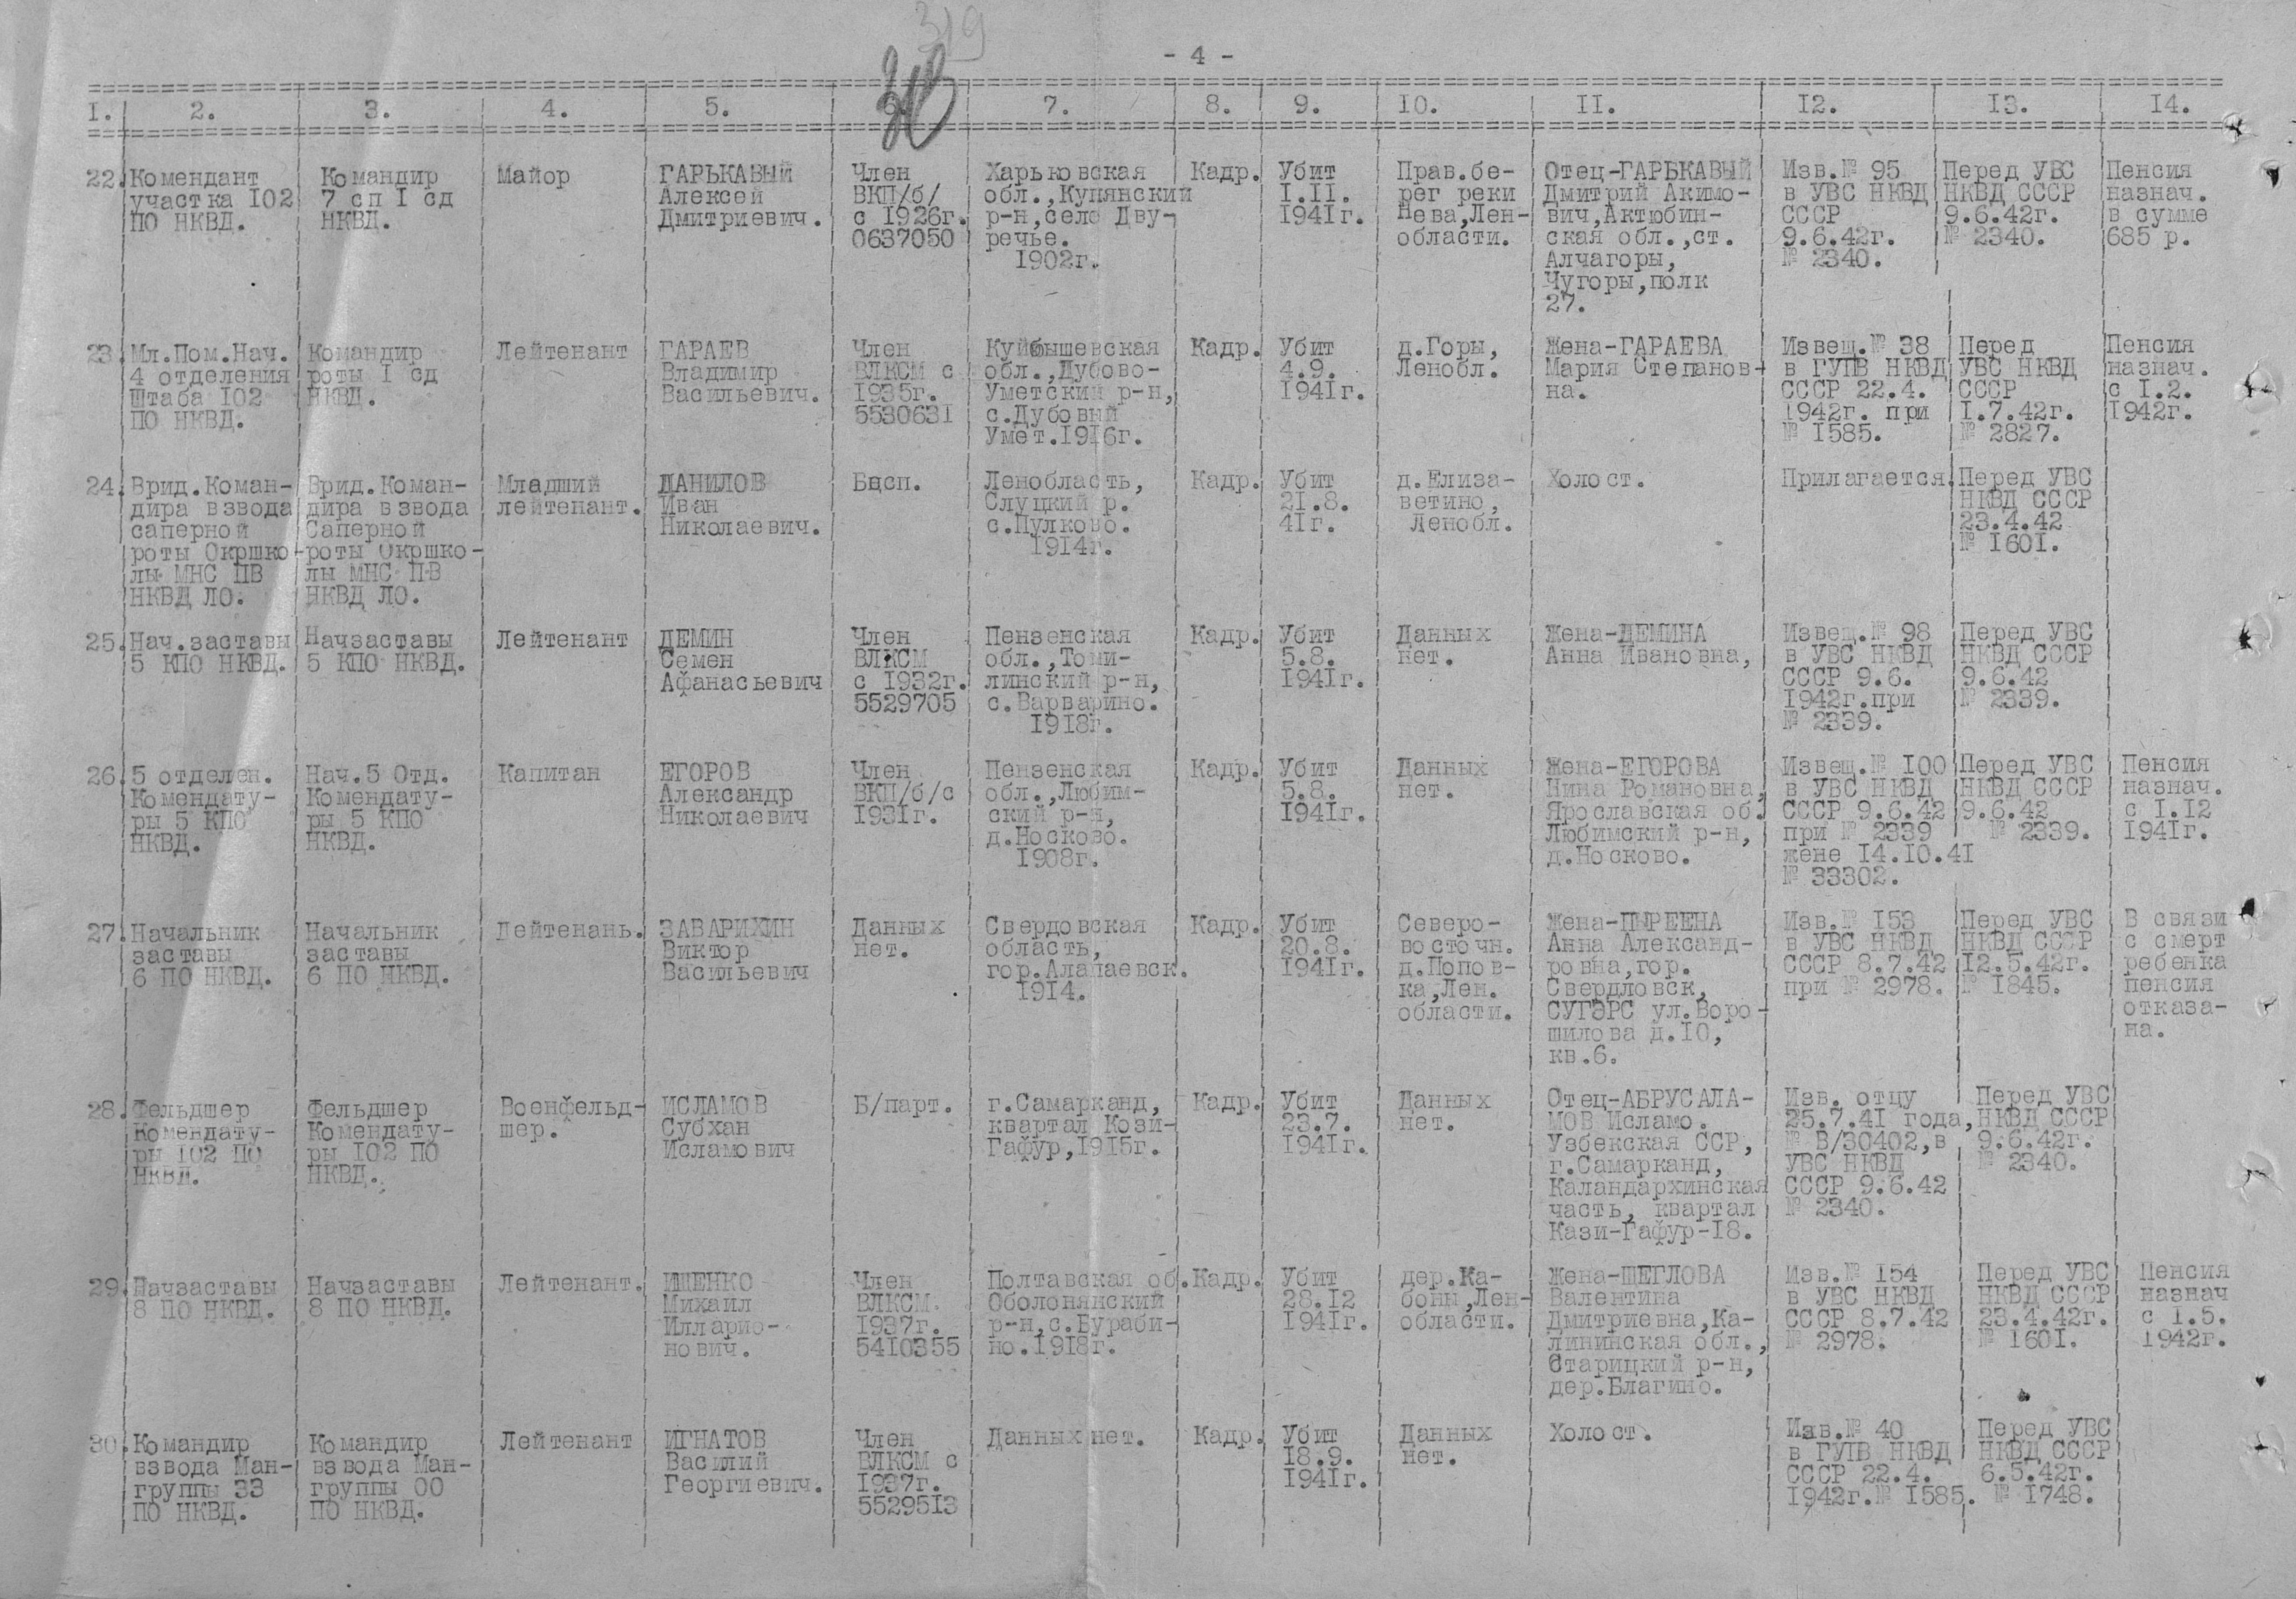 319
- 4 -
I. 2. 3. 4. 5. 7. 8. 9. I0. II. I2. I3. I4.
22.
Комендант
участка I02
ПО НКВД.
Командир
7 сп I сд
НКВД.
Майор
ГАРЬКАВЫЙ
Алексей
Дмитриевич.
Член
ВКП/б/
с I926г.
0637050
Харьковская
обл.,Купянский
р-н,село Дву-
речье.
I902г.
Кадр.
Убит
I.II.
I94Iг.
Прав.бе-
рег реки
Нева,Лен-
области.
Отец-ГАРЬКАВЫЙ
Дмитрий Акимо-
вич,Актюбин-
ская обл.,ст.
Алчагоры,
Чугоры,полк
27.
Изв.№ 95
в УВС НКВД
СССР
9.6.42г.
№ 2340.
Перед УВС
НКВД СССР
9.6.42г.
№ 2340.
Пенсия
назнач.
в сумме
685 р.
23.
Мл.Пом.Нач.
4 отделения
Штаба I02
ПО НКВД.
Командир
роты I сд
НКВД.
Лейтенант
ГАРАЕВ
Владимир
Васильевич.
Член
ВЛКСМ с
I935г.
553063I
Куйбышевская
обл.,Дубово-
Уметский р-н,
с.Дубовый
Умет.I9I6г.
Кадр.
Убит
4.9.
I94Iг.
д.Горы,
Ленобл.
Жена-ГАРАЕВА
Мария Степанов-
на.
Извещ.№ 38
в ГУПВ НКВД
СССР 22.4.
I942г. при
№ I585.
Перед
УВС НКВД
СССР
I.7.42г.
№ 2827.
Пенсия
назнач.
с I.2.
I942г.
24.
Врид.Коман-
дира взвода
саперной
роты Окршко-
лы МНС ПВ
НКВД ЛО.
Врид.Коман-
дира взвода
Саперной
роты Окршко-
лы МНС ПВ
НКВД ЛО.
Младший
лейтенант.
ДАНИЛОВ
Иван
Николаевич.
Бцсп.
Ленобласть,
Слуцкий р.
с.Пулково.
I9I4г.
Кадр.
Убит
2I.8.
4Iг.
д.Елиза-
ветино,
Ленобл.
Холост.
Прилагается.
Перед УВС
НКВД СССР
23.4.42
№ I60I.
25.
Нач.заставы
5 КПО НКВД.
Начзаставы
5 КПО НКВД.
Лейтенант
ДЕМИН
Семен
Афанасьевич
Член
ВЛКСМ
с I932г.
5529705
Пензенская
обл.,Томи-
линский р-н,
с.Варварино.
I9I8г.
Кадр.
Убит
5.8.
I94Iг.
Данных
нет.
Жена-ДЕМИНА
Анна Ивановна,
Извещ.№ 98
в УВС НКВД
СССР 9.6.
I942г.при
№ 2339.
Перед УВС
НКВД СССР
9.6.42
№ 2339.
26.
5 отделен.
Комендату-
ры 5 КПО
НКВД.
Нач.5 Отд.
Комендату-
ры 5 КПО
НКВД.
Капитан
ЕГОРОВ
Александр
Николаевич
Член
ВКП/б/с
I93Iг.
Пензенская
обл.,Любим-
ский р-н,
д.Носково.
I908г.
Кадр.
Убит
5.8.
I94Iг.
Данных
нет.
Жена-ЕГОРОВА
Нина Романовна,
Ярославская об.
Любимский р-н,
д.Носково.
Извещ.№ I00
в УВС НКВД
СССР 9.6.42
при № 2339
жене I4.I0.4I
№ 33302.
Перед УВС
НКВД СССР
9.6.42
№ 2339.
Пенсия
назнач.
с I.I2
I94Iг.
27.
Начальник
заставы
6 ПО НКВД.
Начальник
заставы
6 ПО НКВД.
Лейтенань.
ЗАВАРИХИН
Виктор
Васильевич
Данных
нет.
Свердовская
область,
гор.Алапаевск.
I9I4.
Кадр.
Убит
20.8.
I94Iг.
Северо-
восточн.
д.Попов-
ка,Лен.
области.
Жена-ПЫРЕЕНА
Анна Александ-
ровна,гор.
Свердловск,
СУГЭРС ул.Воро-
шилова д.I0,
кв.6.
Изв.№ I53
в УВС НКВД
СССР 8.7.42
при № 2978.
Перед УВС
НКВД СССР
I2.5.42г.
№ I845.
В связи
с смерт
ребенка
пенсия
отказа-
на.
28.
Фельдшер
Комендату-
ры I02 ПО
НКВД.
Фельдшер
Комендату-
ры I02 ПО
НКВД.
Военфельд-
шер.
ИСЛАМОВ
Субхан
Исламович
Б/парт.
г.Самарканд,
квартал Кози-
Гафур,I9I5г.
Кадр.
Убит
23.7.
I94Iг.
Данных
нет.
Отец-АБРУСАЛА-
МОВ Исламо.
Узбекская ССР,
г.Самарканд,
Каландархинская
часть, квартал
Кази-Гафур-I8.
Изв. отцу
25.7.4I года,
№ В/30402,в
УВС НКВД
СССР 9.6.42
№ 2340.
Перед УВС
НКВД СССР
9.6.42г.
№ 2340.
29.
Начзаставы
8 ПО НКВД.
Начзаставы
8 ПО НКВД.
Лейтенант.
ИЩЕНКО
Михаил
Илларио-
нович.
Член
ВЛКСМ.
I937г.
54I0355
Полтавская об.
Оболонянский
р-н,с.Бураби-
но.I9I8г.
Кадр.
Убит
28.I2
I94Iг.
дер.Ка-
боны,Лен-
области.
Жена-ЩЕГЛОВА
Валентина
Дмитриевна,Ка-
лининская обл.,
Старицкий р-н,
дер.Благино.
Изв.№ I54
в УВС НКВД
СССР 8.7.42
№ 2978.
Перед УВС
НКВД СССР
23.4.42г.
№ I60I.
Пенсия
назнач
с I.5.
I942г.
30.
Командир
взвода Ман-
группы 33
ПО НКВД.
Командир
взвода Ман-
группы 00
ПО НКВД.
Лейтенант
ИГНАТОВ
Василий
Георгиевич.
Член
ВЛКСМ с
I937г.
55295I3
Данных нет.
Кадр.
Убит
I8.9.
I94Iг.
Данных
нет.
Холост.
Изв.№ 40
в ГУПВ НКВД
СССР 22.4.
I942г.№ I585.
Перед УВС
НКВД СССР
6.5.42г.
№ I748.